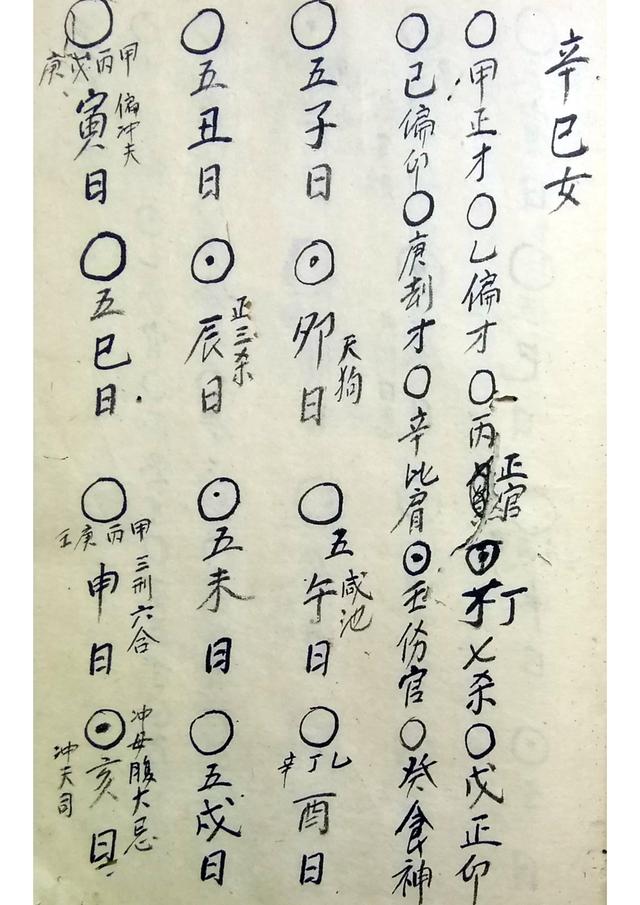 辛巳女
○甲正才○乚偏才○丙正官⊙丁七杀○戊正卬
○已偏卬○庚刦才○辛比肩⊙壬伤官○癸食神
○五子日⊙卯日天狗○五午日咸池○乚丁辛酉日
○五丑日⊙辰日正三杀⊙五未日○五戌日
○甲丙戊庚寅日偏冲夫○五巳日○甲丙庚壬申日三刑六合⊙亥日冲母腹大忌冲夫司